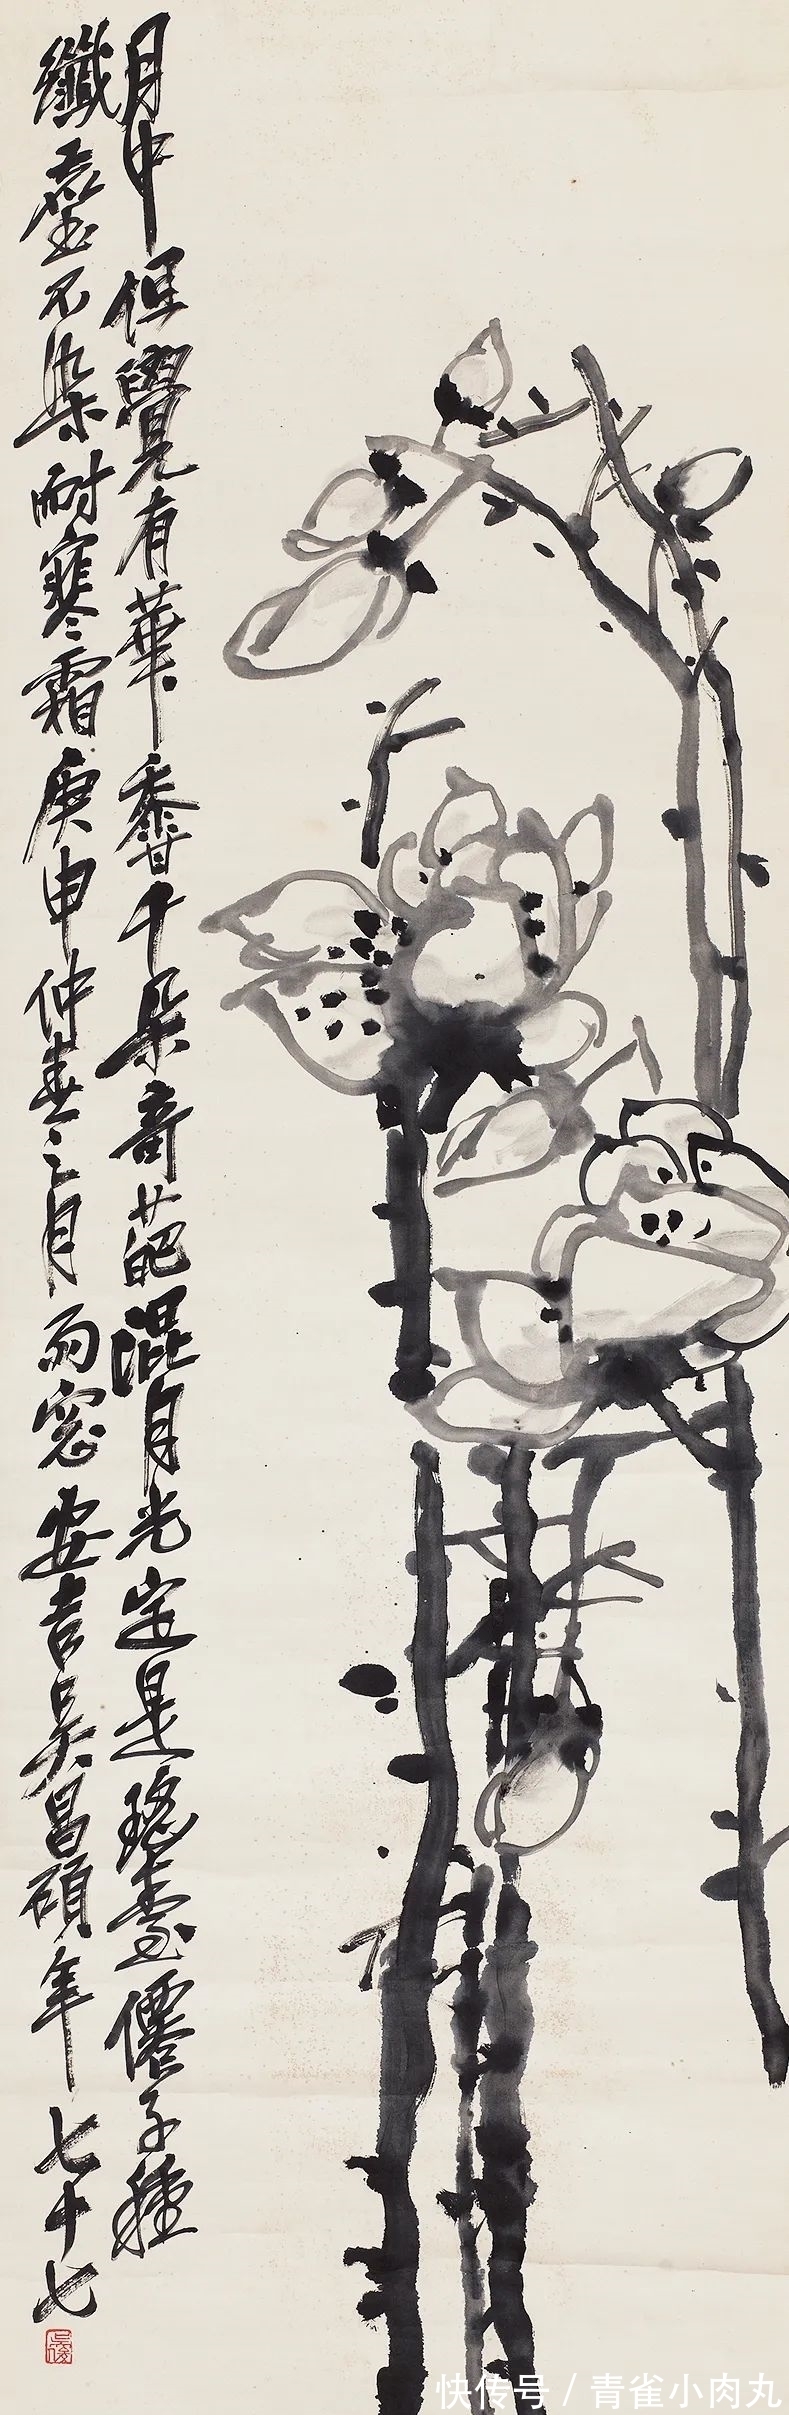 月中但覺有華香千朵奇葩混月光定是瑤臺僊子種
纖塵不染耐寒霜庚申仲春之月雨窗安吉吳昌碩年七十七
快传号／青雀小肉丸